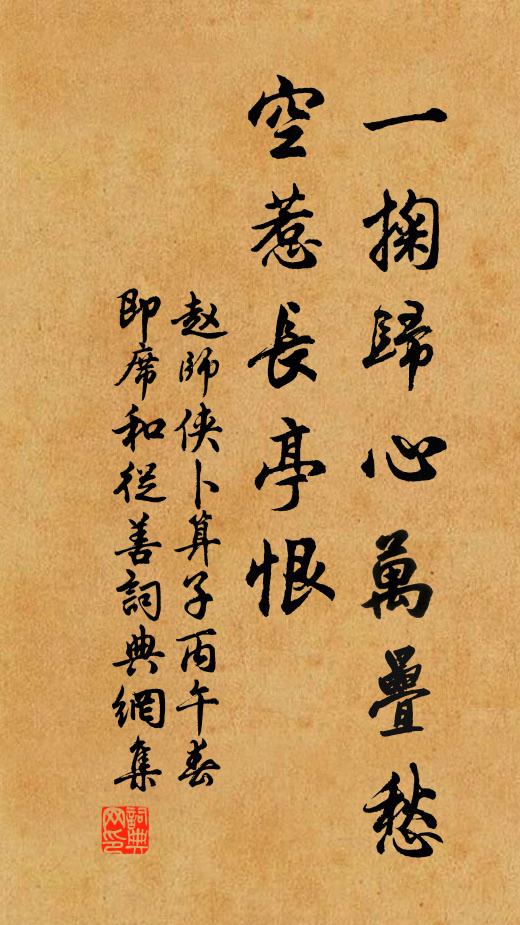 一掬歸心萬疊愁
空惹長亭恨
赵師俠卜算子丙午春
即席和從善詞典網集
詞典
网印